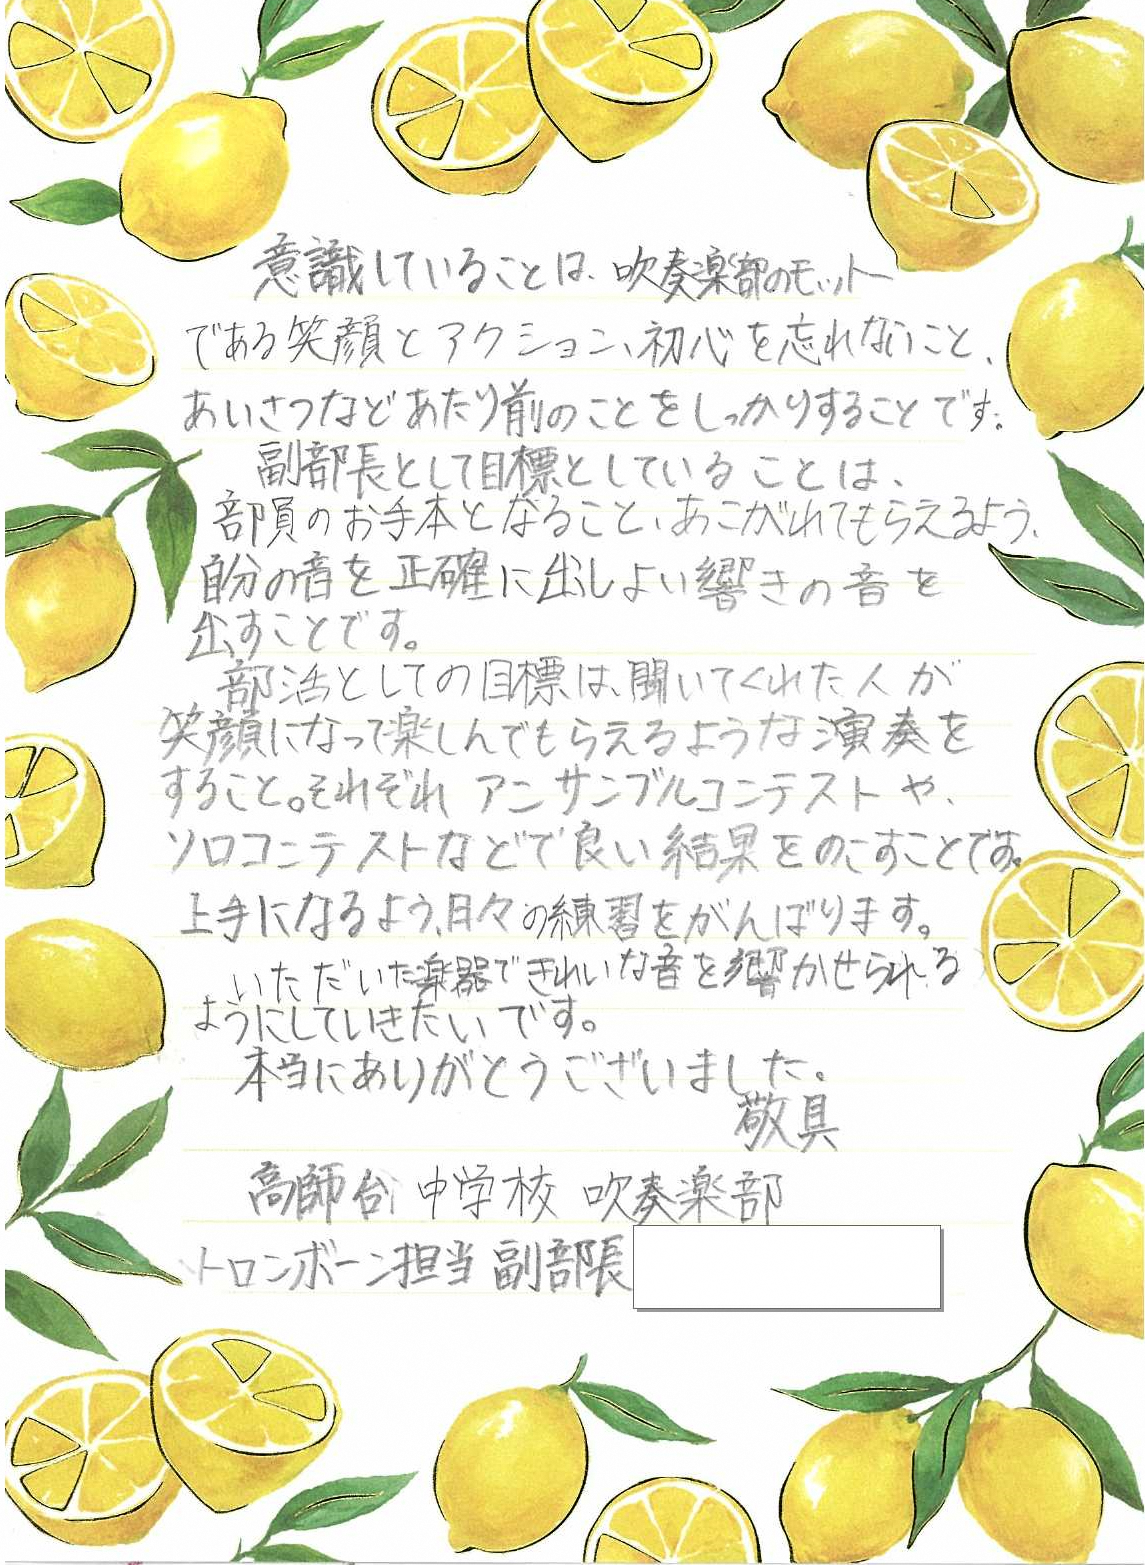 意識していることは、吹奏楽部のモットー
である笑顔とアクション、初心を忘れないこと、
あいさつなどあたり前のことをしっかりすることです。
副部長として目標としていることは、
部員のお手本となること、あこがれてもらえるよう、
自分の音を正確に出しよい響きの音を
出すことです。
部活としての目標は、聞いてくれた人が
笑顔になって楽しんでもらえるような演奏を
すること。それぞれアンサンブルコンテストや、
ソロコンテストなどで良い結果をのこすことです。
上手になるよう、日々の練習をがんばります。
いただいた楽器できれいな音を響かせられる
ようにしていきたいです。
本当にありがとうございました。
敬具
高師台中学校 吹奏楽部
トロンボーン担当 副部長